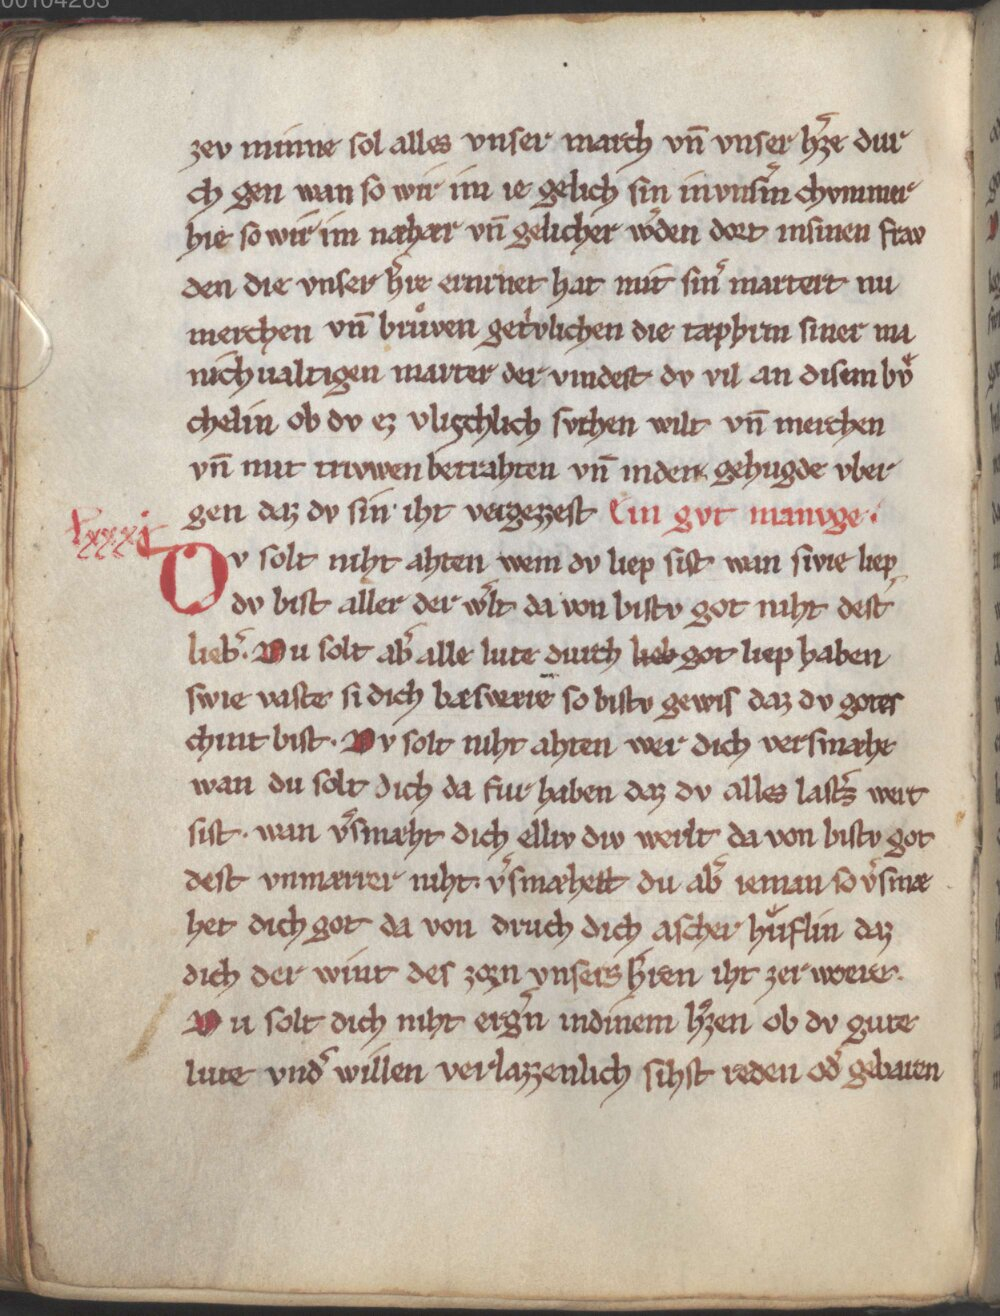 00104263
zev minne sol alles vnser march vn̄ vnser h̾ze dur
ch gen wan so wir im ie gelich sin in vnsm̾ chvmmer
hie so wir im næhær vn̄ gelicher w̾den dort in sinen frav
den die vnser h̾re erarnet hat mit sin̾ martert nu
merchen vn̄ brůven getrvlichen die taphrin siner ma
nichualtigen marter der vindest dv vil an disem bvͦ
chelin ob dv ez vlizchlich svchen wilt vn̄ merchen
vn̄ mit trivwen betrahten vn̄ inden gehugde vber
gen daz dv sin iht vergezzest Ein gvt manvge.
lxxxi
Dv solt niht ahten wem dv liep sist wan swie liep
dv bist aller der w̾lt da von bistv got niht dest
lieb̾. Du solt ab̾ alle lute durch lieb got liep haben
swie vaste si dich bæswærē so bistv gewis daz dv gotes
chint bist. Dv solt niht ahten wer dich versmæhe
wan du solt dich da fur haben daz dv alles last̾s wert
sist. wan v̾smæht dich elliv div werlt da von bistv got
dest vnmærrer niht. v̾smæhest du ab̾ ieman so v̾smæ
het dich got da von druch dich ascher hůflin daz
dich der wint des zorn vnsers h̾ren iht zer wæie.
Du solt dich niht erg̾n in dinem h̾zen ob dv gute
lute vnd̾ willen verlazzenlich sihst reden od̾ gebaren